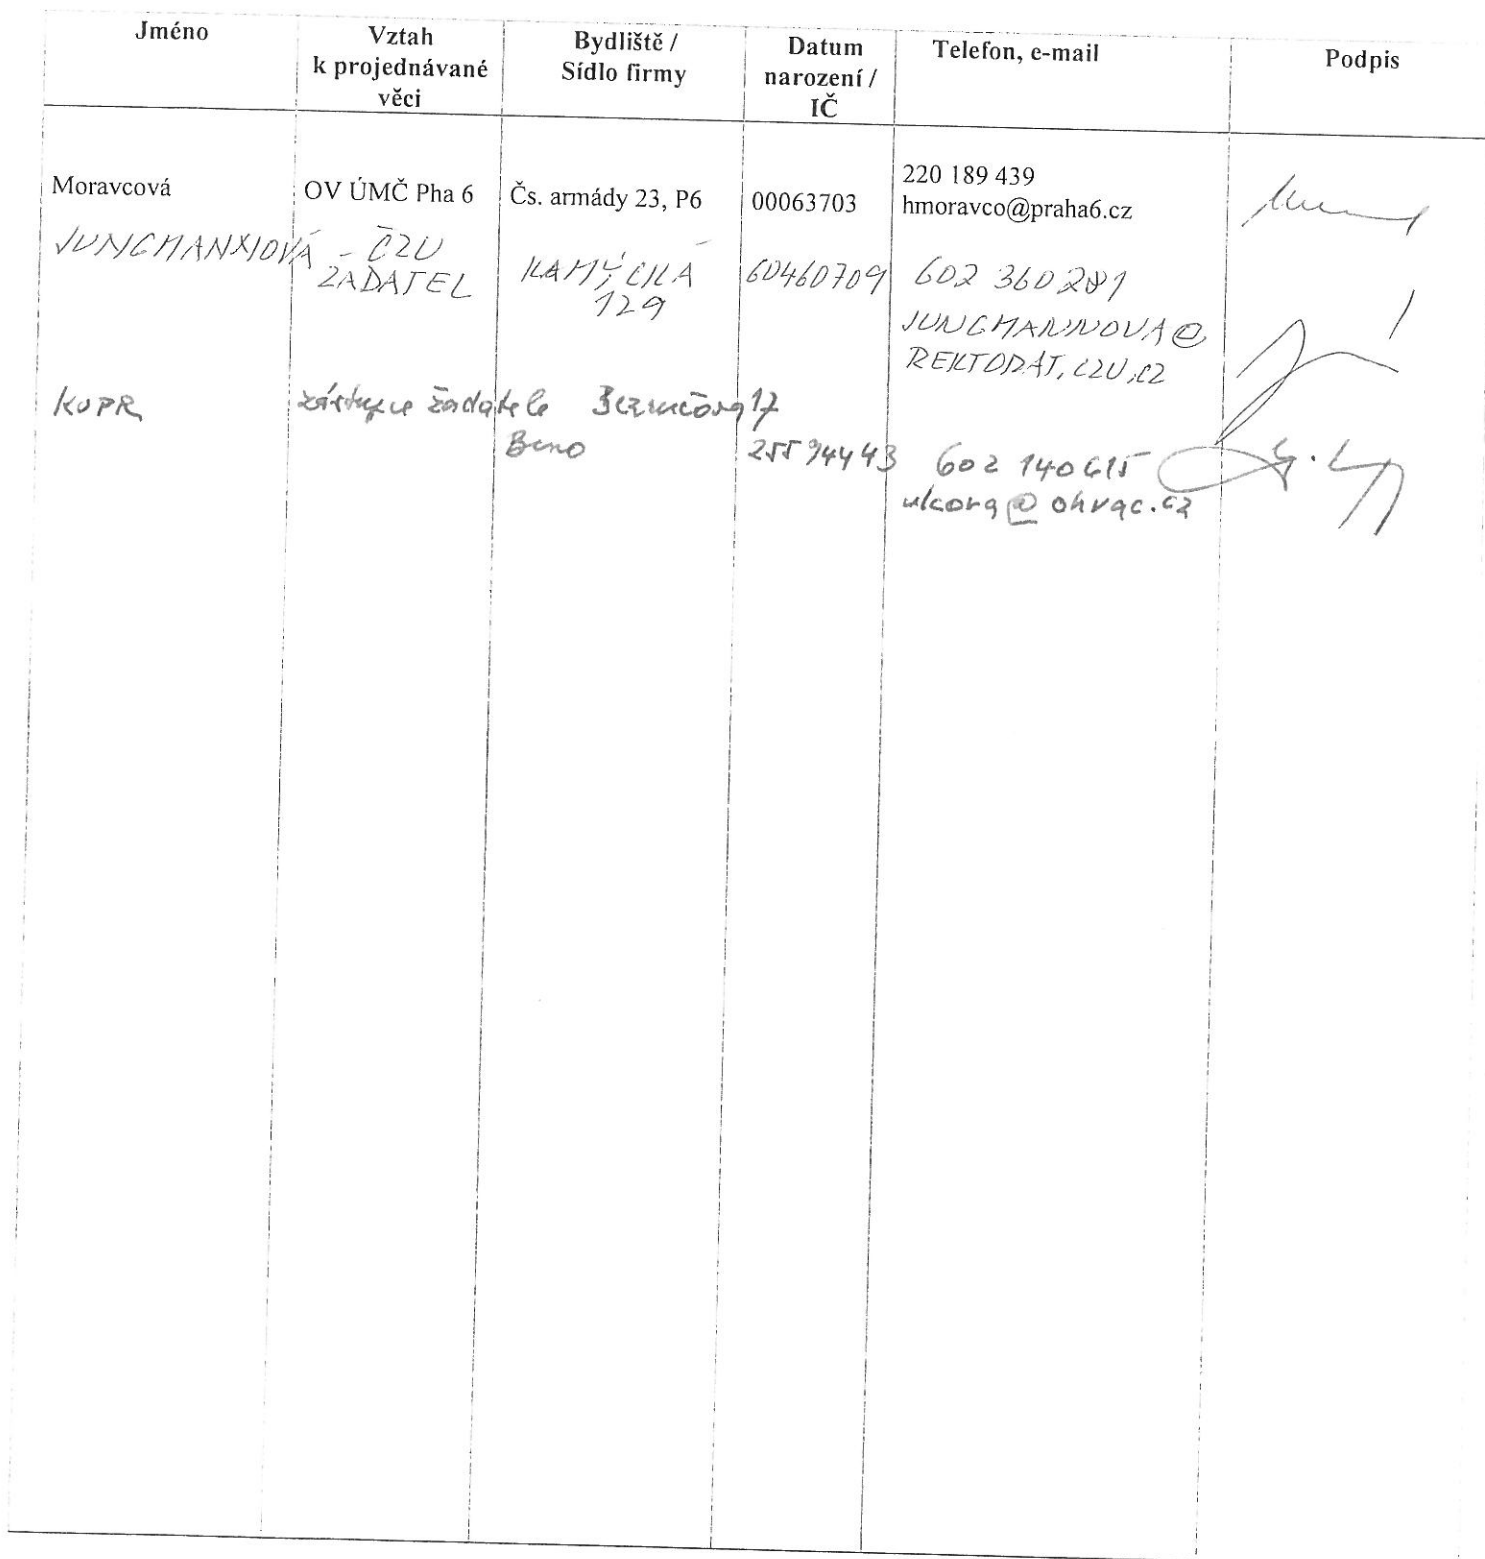 Jméno
Vztah
k projednávané
věci
Bydliště /
Sídlo firmy
Datum
narození /
IČ
Telefon, e-mail
Podpis
Moravcová
OV ÚMČ Pha 6
Čs. armády 23, P6
00063703
220 189 439
hmoravco@praha6.cz
JUNGMANNOVÁ
- ČZU
ŽADATEL
KAMÝCKÁ
129
60460709
602 360 281
JUNGMANNOVA@
REKTORAT.CZU.CZ
KUPR
zástupce žadatele
Bezručova 17
Brno
25594443
602 140 615
@ohvac.cz